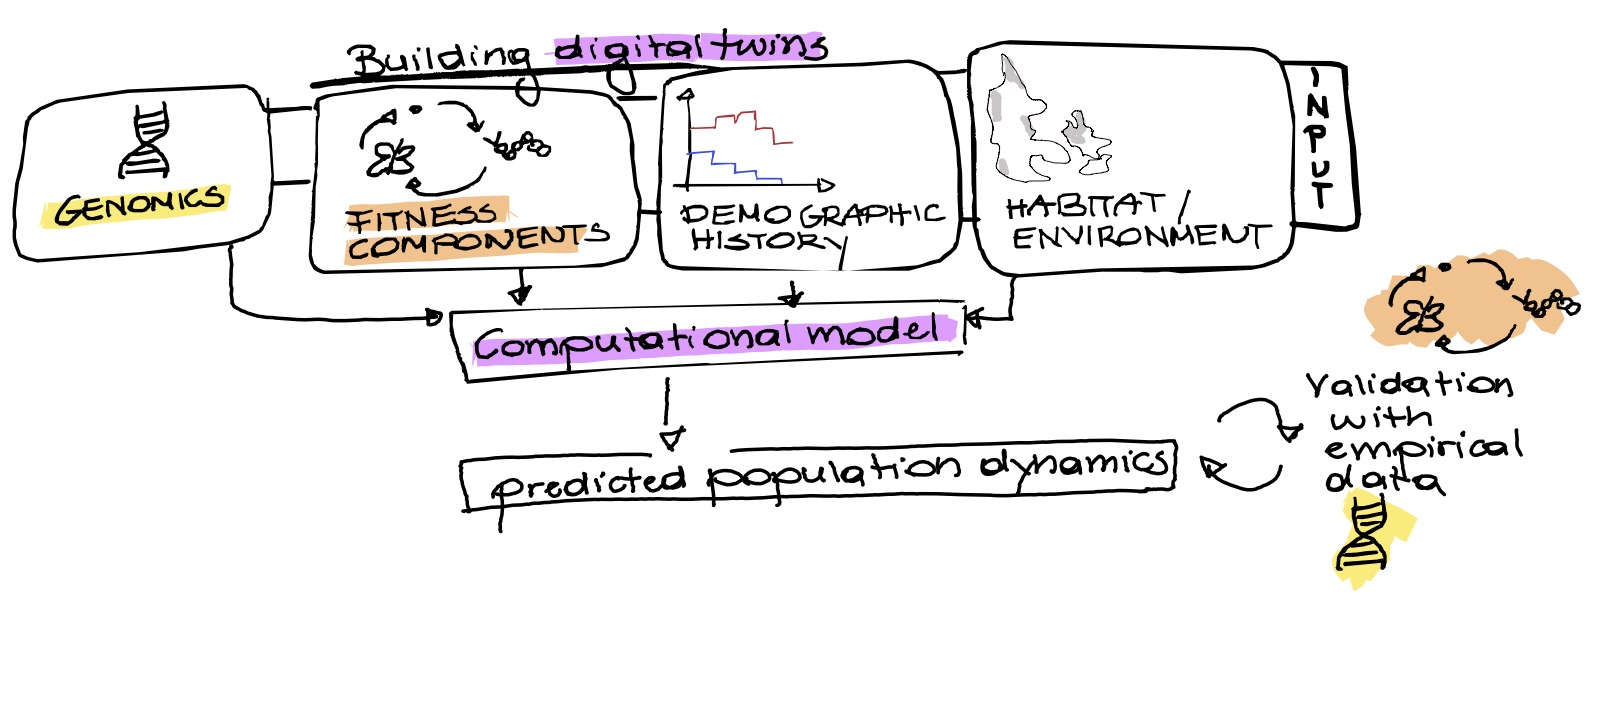 Building digital twins
GENOMICS
FITNESS
COMPONENTS
DEMOGRAPHIC
HISTORY
HABITAT /
ENVIRONMENT
INPUT
Computational model
predicted population dynamics
Validation
with
empirical
data